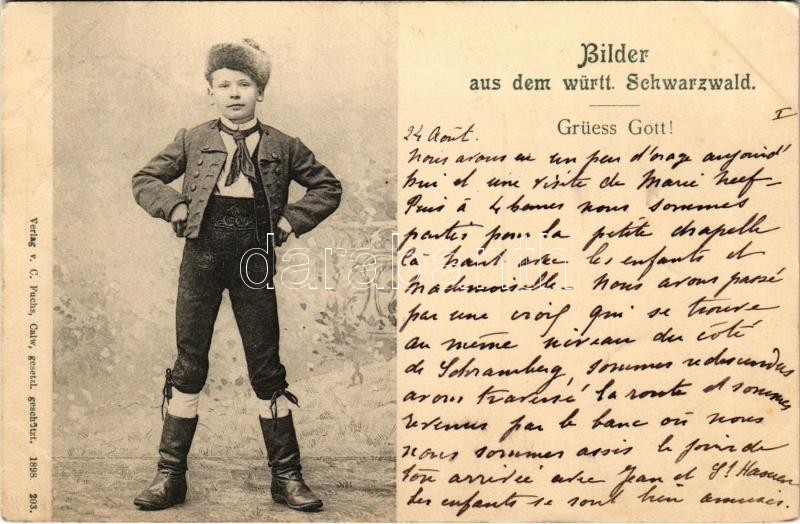 Bilder
aus dem württ. Schwarzwald.
Grüess Gott!
I
24 Août.
Nous avons eu un peu d'orage aujourd'
hui et une visite de Marie Neef –
Puis à 4 heures nous sommes
parties pour la petite chapelle
là haut avec les enfants et
Mademoiselle – Nous avons passé
par une croix qui se trouve
au même niveau du côté
de Schramberg, sommes redescendus
avons traversé la route et sommes
revenus par le banc où nous
nous sommes assis le jour de
ton arrivée avec Jean et
Les enfants se sont bien amusés.
Verlag v. C. Fuchs, Calw, gesetzl. geschützt. 1898. 203.
darabanth